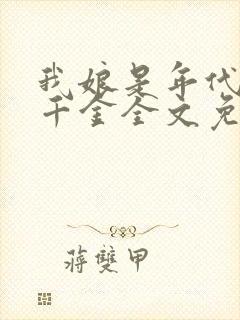 我娘是年代
千金全文免
蒋雙甲